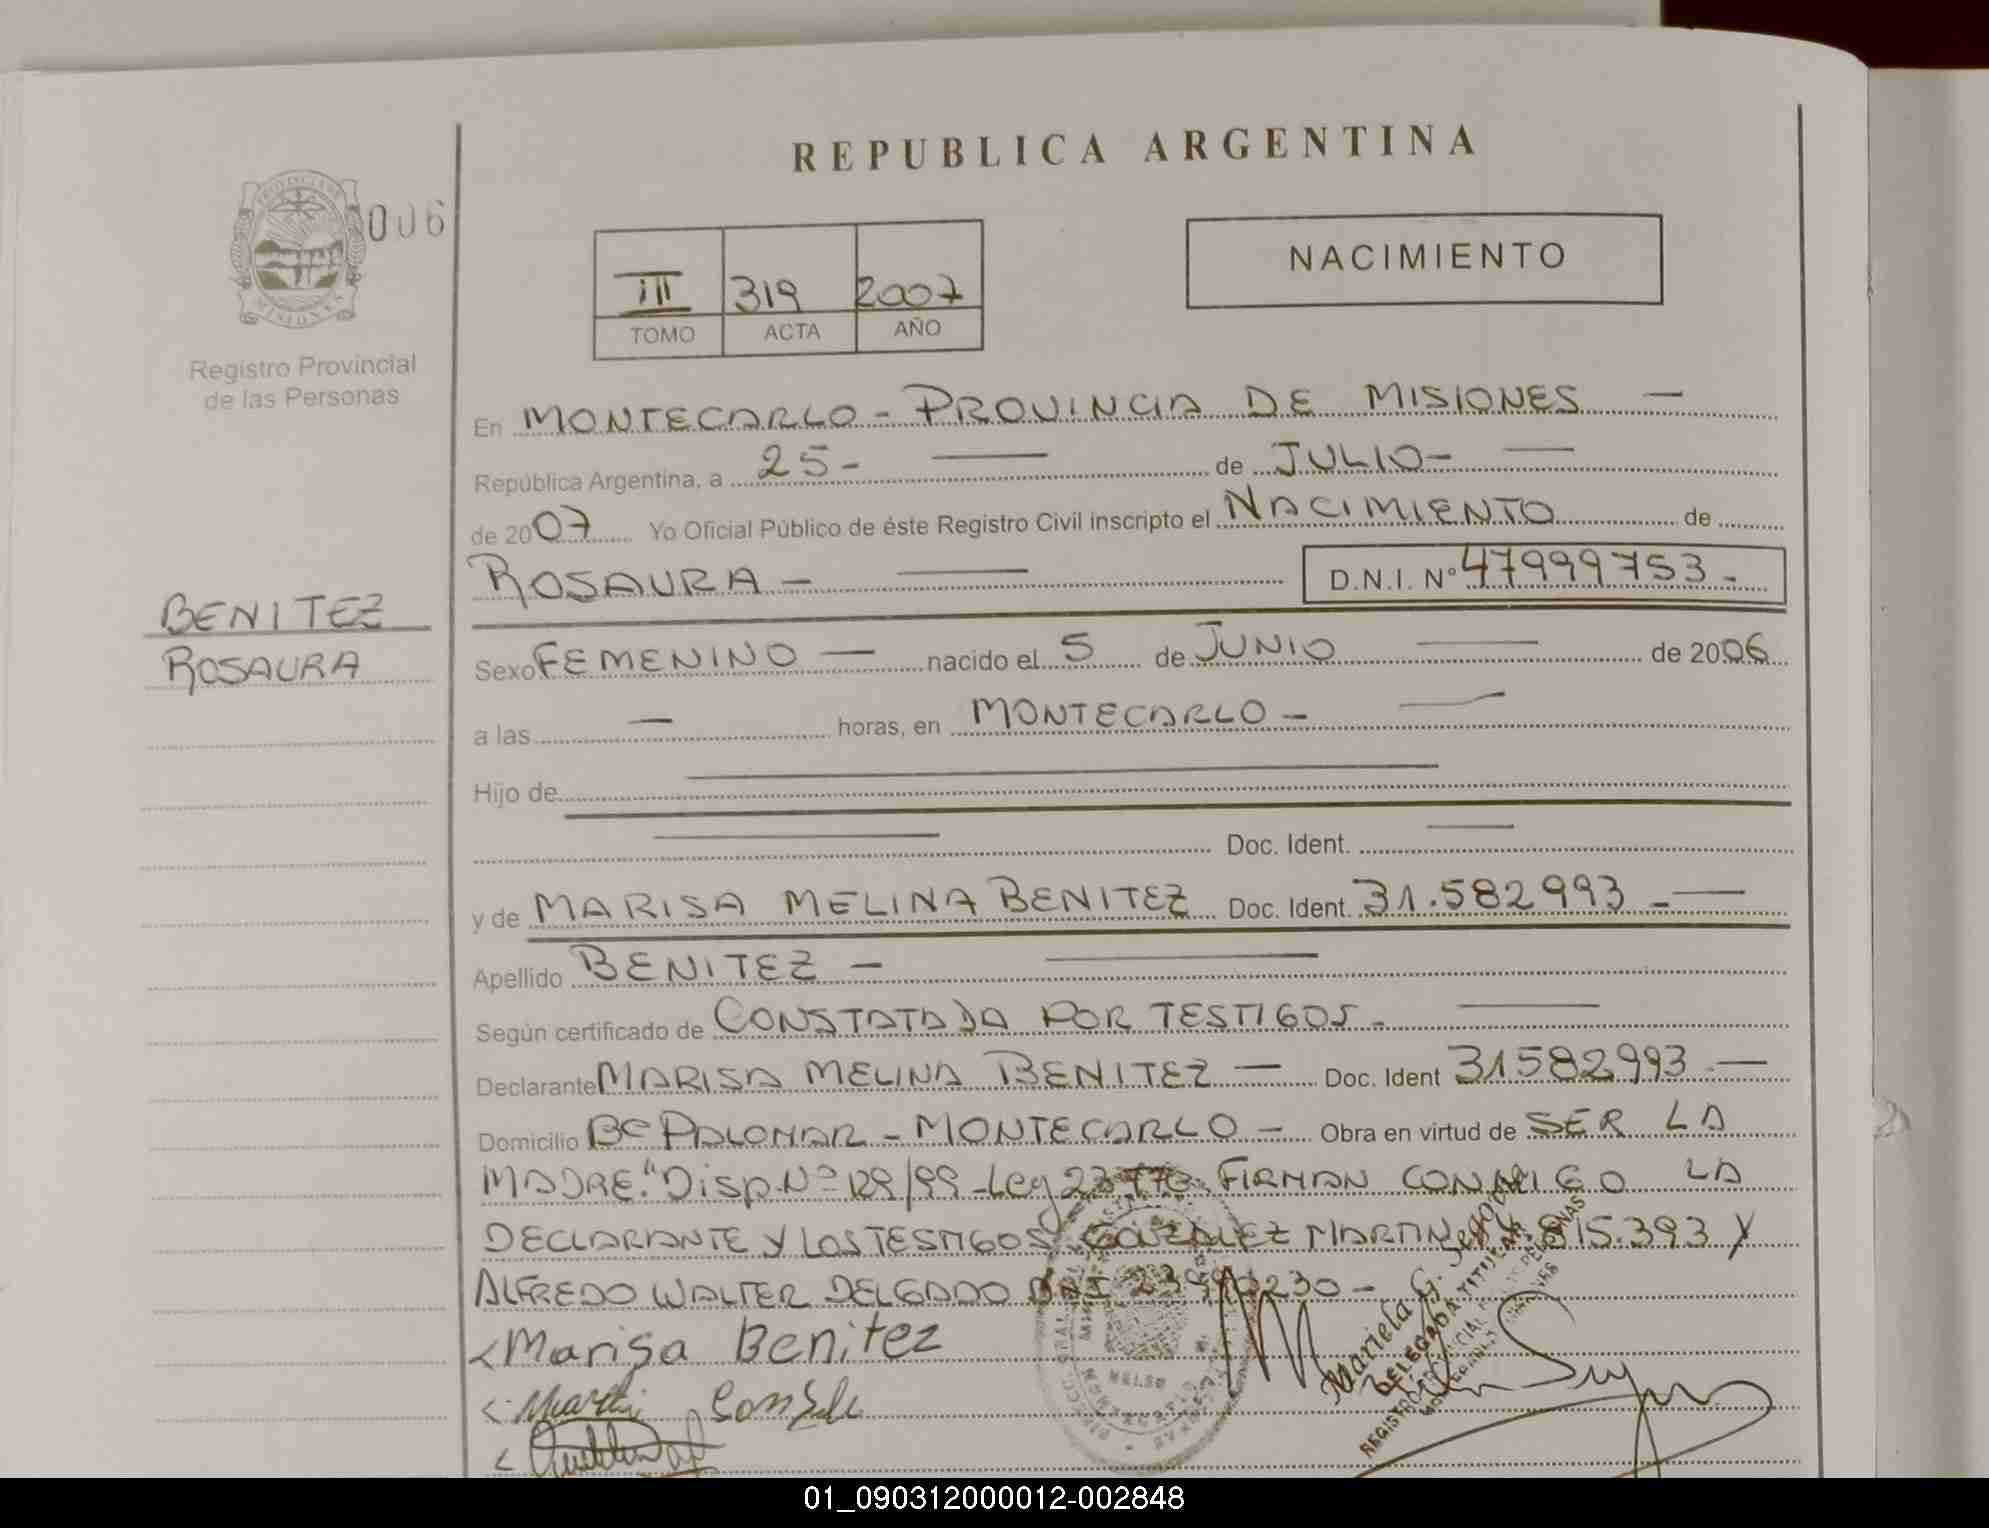 REPUBLICA ARGENTINA
PROVINCIA DE
MISIONES
006
Registro Provincial
de las Personas
III 319 2007
TOMO ACTA AÑO
NACIMIENTO
En MONTECARLO - PROVINCIA DE MISIONES —
República Argentina, a 25 - — de JULIO - —
de 2007 Yo Oficial Público de éste Registro Civil inscripto el NACIMIENTO de
ROSAURA - — D.N.I. N° 47999753 -
BENITEZ
ROSAURA
Sexo FEMENINO — nacido el 5 de JUNIO — de 2006
a las — horas, en MONTECARLO - —
Hijo de —
— Doc. Ident. —
y de MARISA MELINA BENITEZ Doc. Ident. 31.582993 - —
Apellido BENITEZ - —
Según certificado de CONSTATADA POR TESTIGOS - —
Declarante MARISA MELINA BENITEZ — Doc. Ident 31582993 - —
Domicilio Bº PALOMAR - MONTECARLO - Obra en virtud de SER LA
MADRE. "Disp. Nº 129/99 - Ley FIRMAN CONMIGO LA
DECLARANTE Y LOS TESTIGOS MARTIN 815.393 Y
ALFREDO WALTER DELGADO DNI 230 -
< Marisa Benitez
< Martin
<
Mariela G.
DELEGADA TITULAR
01_090312000012-002848